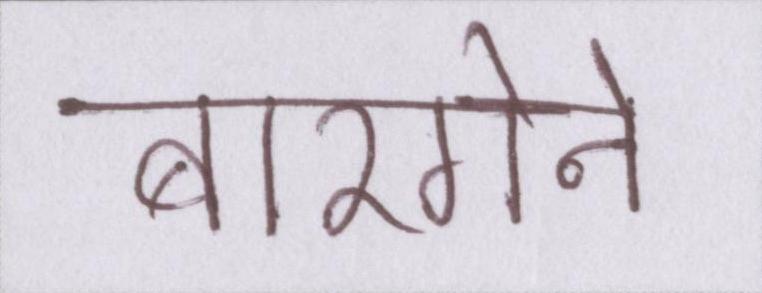 बारगेने